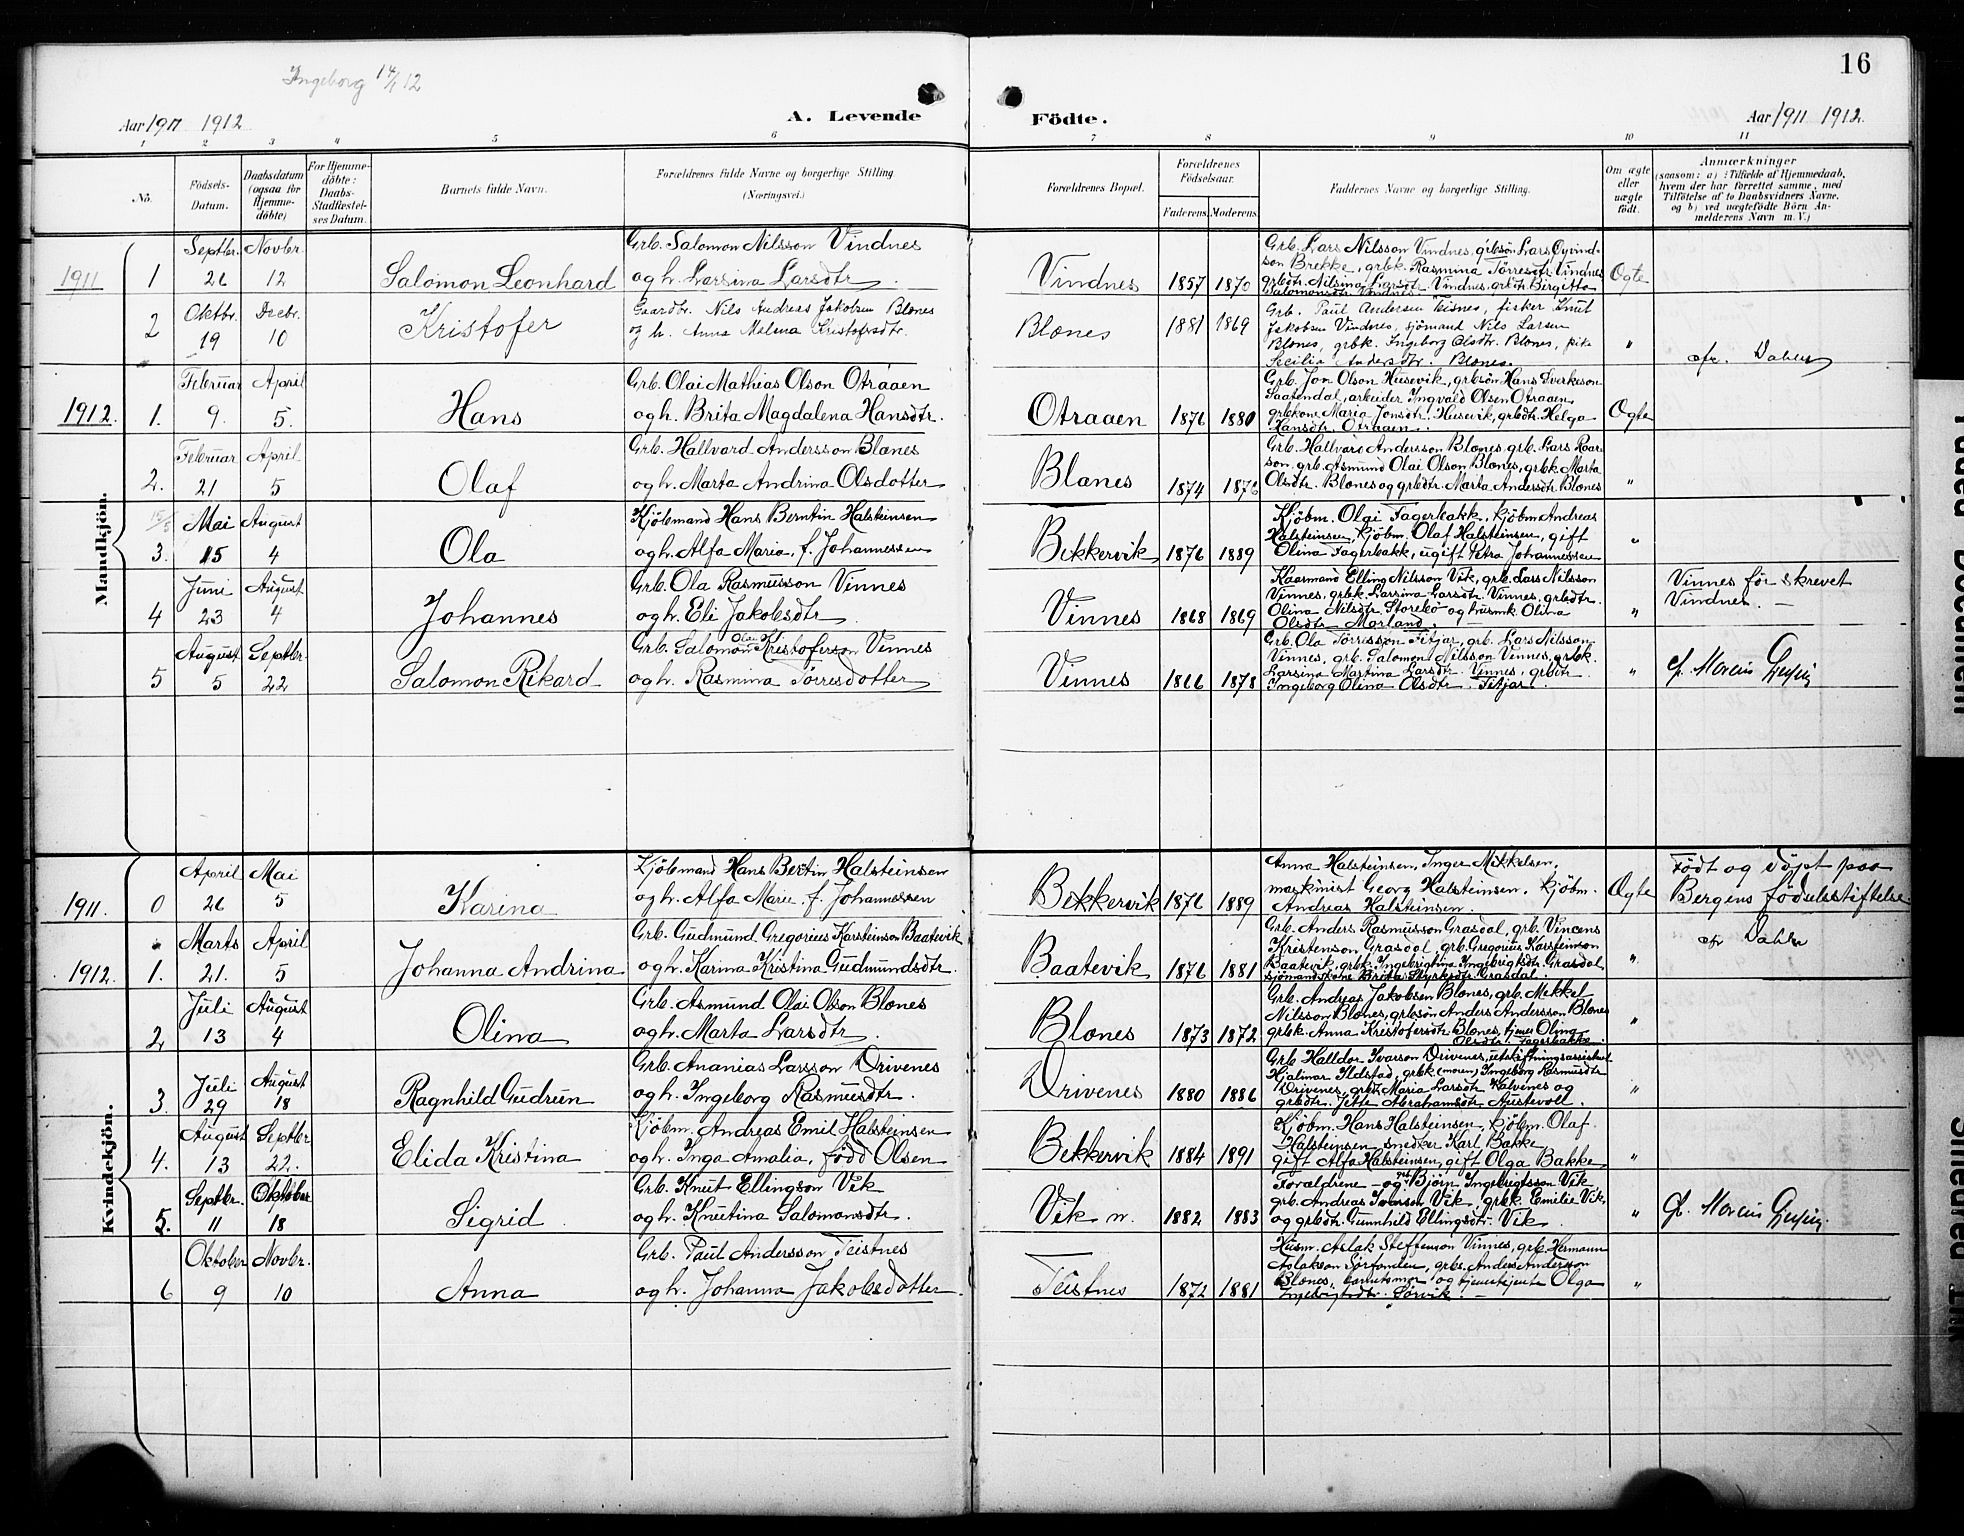 Ingeborg 14/1 12
16
Aar 1911 1912
A. Levende
Födte.
Aar 1911 1912.
1 2 3 4 5 6 7 8 9 10 11
No.
Födsels-
Datum.
Daabsdatum
(ogsaa for
Hjemme-
döbte)
For Hjemme-
döbte:
Daabs-
Stadfæstel-
ses Datum.
Barnets fulde Navn.
Forældrenes fulde Navne og borgerlige Stilling
(Næringsvei.)
Forældrenes Bopæl.
Forældrenes
Födselsaar.
Faderens. Moderens.
Faddernes Navne og borgerlige Stilling.
Om ægte
eller
uægte
født.
Anmærkninger
(saasom: a) i Tilfælde af Hjemmedaab,
hvem der har forrettet samme, med
Tilföielse af to Daabsvidners Navne,
og b) ved uægtefödte Börn An-
melderens Navn m. V.)
Mandkjön.
1911
1
Septbr.
26
Novbr.
12
Salomon Leonhard
Grb. Salomon Nilsson Vindnes
og h. Larsina Larsdtr.
Vindnes
1857 1870
Grb. Lars Nilsson Vindnes, grbsön Lars Öyvind-
son Brekke, grbk. Rasmina Törresdtr. Vindnes
grbdtr. Nilsina Larsdtr. Vindnes, grbdtr. Birgitta
Salomonsdtr. Vindnes.
Ogte
2
Oktbr.
19
Decbr.
10
Kristofer
Gaardbr. Nils Andreas Jakobsen Blænes
og h. Anna Malena Kristofersdtr.
Blænes
1881 1869
Grb. Paul Andersen Teisnes, fisker Knut
Jakobsen Vindnes, sjömand Nils Larsen
Blænes, grbk. Ingeborg Olsdtr. Blænes, pike
Secilia Andersdtr. Blænes.
"
Dahler
1912.
1.
Februar
9.
April
5.
Hans
Grb. Olai Mathias Olson Otraaen
og h. Brita Magdalena Hansdtr.
Otraaen
1876 1880
Grb. Jon Olson Husevik, grbsön Hans Sverkeson
Saatendal, arbeider Ingvald Olsen Otraaen
grbkone Maria Jonsdtr. Husevik, grbdtr. Helga
Hansdtr. Otraaen.
Ogte
2.
Februar
21
April
5
Olaf
Grb. Hallvard Andersson Blænes
og h. Marta Andrina Olsdotter
Blænes
1874 1876
Grb. Hallvard Andersson Blænes, grb. Lars Knar-
son, grb. Asmund Olai Olson Blænes, grbk. Marta
Olsdtr. Blænes og grbdtr. Marta Andersdtr. Blænes
"
15/5
3.
Mai
15
August
4
Ola
Kjöbmand Hans Berntin Halsteinsen
og h. Alfa Maria, f. Johannessen
Bekkervik
1876 1889
Kjöbm. Olai Fagerbakk, kjöbm Andreas
Halsteinsen, kjöbm. Olaf Halsteinsen, gift
Olina Fagerbakk, ugift Petra Johannessen
"
4
Juni
23
August
4
Johannes
Grb. Ola Rasmusson Vinnes
og h. Eli Jakobsdtr.
Vinnes
1868 1869
Kaarmand Elling Nilsson Vik, grb. Lars Nilsson
Vinnes, grbk. Larsina Larsdtr. Vinnes, grbdtr.
Olina Nilsdtr. Storebö og husmk Olina
Olsdtr. Marland.
"
Vinnes för skrevet
Vindnes. —
5
August
5
Septbr.
22
Salomon Rikard
Grb. Salomon Olai Kristoferson Vinnes
og h. Rasmina Törresdotter
Vinnes
1866 1878
Grb. Ola Törresson Fitjar, grb. Lars Nilsson
Vinnes, grb. Salomon Nilsson Vinnes, grbk.
Larsina Martina Larsdtr. Vinnes, grbdtr.
Ingeborg Olina Olsdtr. Fitjar.
"
Kvindekjön.
1911.
0
April
26
Mai
5
Karina
Kjöbmand Hans Berntin Halsteinsen
og h. Alfa Marie, f. Johannessen
Bekkervik
1876 1889
Anna Halsteinsen, Inger Mikkelsen,
maskinist Georg Halsteinsen, kjöbm.
Andreas Halsteinsen.
Ogte
Födt og döpt paa
Bergens födselsstiftelse.
Dahler
1912.
1.
Marts
21.
April
5
Johanna Andrina
Grb. Gudmund Gregorius Karsteinson Baatevik
og h. Karina Kristina Gudmundsdtr.
Baatevik
1876 1881
Grb. Anders Rasmusson Grasdal, grb. Vincens
Kristenson Grasdal, grb. Gregorius Karsteinson
Baatevik, grbk. Ingebrigtina Ingebrigtsdtr. Grasdal
sjömandskone Brita Styrksdtr. Grasdal.
"
2
Juli
13
August
4
Olina
Grb. Asmund Olai Olson Blænes
og h. Marta Larsdtr.
Blænes
1873 1872
Grb. Andreas Jakobsen Blænes, grb. Mikkel
Nilsson Blænes, grbsön Anders Andersson Blænes
grbk. Anna Kristofersdtr. Blænes, tjener Olina
Olsdtr. Fagerbakke.
"
3.
Juli
29
August
18
Ragnhild Gudrun
Grb. Ananias Larsson Drivenes
og h. Ingeborg Rasmusdtr.
Drivenes
1880 1886
Grb. Halldor Ivarson Drivenes, utskiftningsassistent
Hjalmar Ildstad, grbk. (moren) Ingeborg Rasmusdtr
Drivenes, grbdtr. Maria Larsdtr. Kalvenes og
grbdtr. Jette Abrahamsdtr. Austevoll.
"
4.
August
13
Septbr.
22.
Elida Kristina
Kjöbm. Andreas Emil Halsteinsen
og h. Inga Amalia, född Olsen
Bekkervik
1884 1891
Kjöbm. Hans Halsteinsen, kjöbm. Olaf
Halsteinsen, snedker Karl Bakke,
gift Alfa Halsteinsen, gift Olga Bakke
"
5.
Septbr.
11
Oktober
18
Sigrid
Grb. Knut Ellingson Vik
og h. Knutina Salomonsdtr.
Vik n.
1882 1883
Forældrene - og grb Björn Ingebrigtsson Vik
grb. Andreas Ivarson Vik, grbk. Emilie Vik,
og grbdtr. Gunnhild Ellingsdtr. Vik
"
6
Oktober
9
Novbr.
10
Anna
Grb. Paul Andersson Teistnes
og h. Johanna Jakobsdotter.
Teistnes
1872 1881
Husm. Aslak Steffenson Vinnes, grb. Hermann
Aslakson Sörfonden, grbs. Anders Andersson
Blænes, barnets mor og tjenestejente Olga
Ingebrigtsdtr. Sörvik. —
"